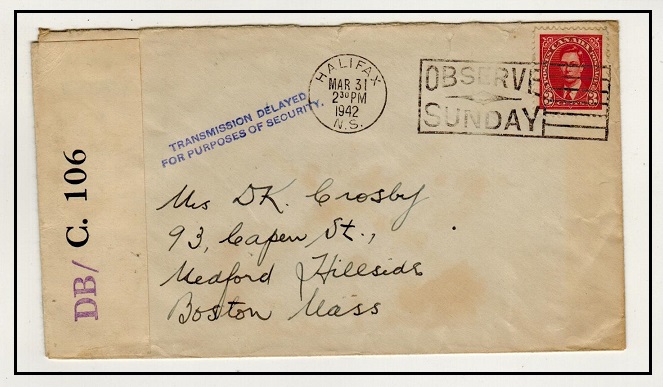 HALIFAX
MAR 31
2 30 PM
1942
N.S.
OBSERVE
SUNDAY
CANADA
3 CENTS 3
TRANSMISSION DELAYED
FOR PURPOSES OF SECURITY.
DB/ C. 106
Mrs D K. Crosby
93, Capen St.,
Medford Hillside
Boston Mass